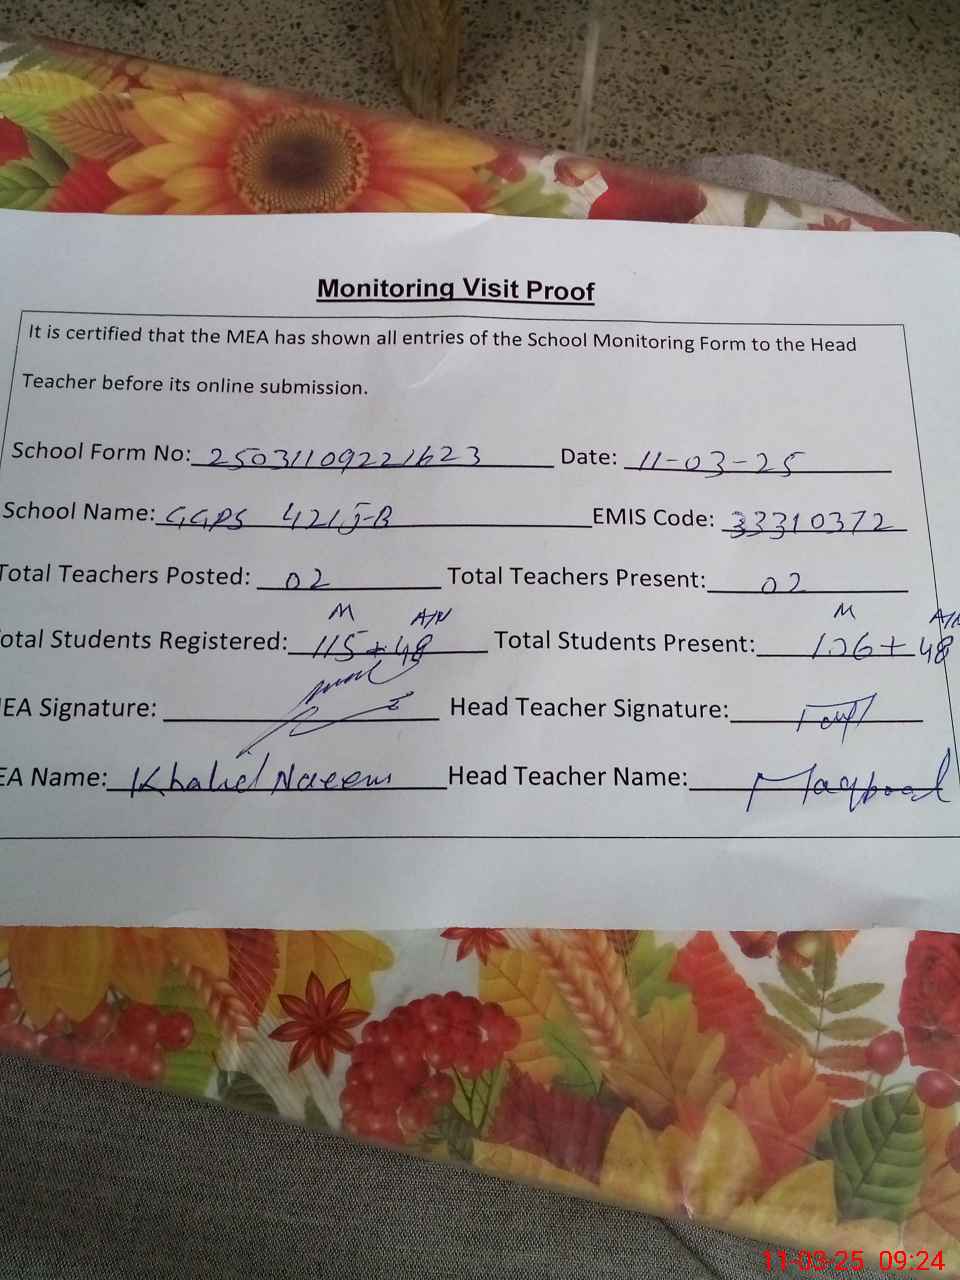 Monitoring Visit Proof
It is certified that the MEA has shown all entries of the School Monitoring Form to the Head
Teacher before its online submission.
School Form No: 25031109221623 Date: 11-03-25
School Name: GGPS 421 J-B EMIS Code: 33310372
Total Teachers Posted: 02 Total Teachers Present: 02
M A/N M A/N
otal Students Registered: 115+48 Total Students Present: 106+48
EA Signature: Head Teacher Signature:
EA Name: Khalid Naeem Head Teacher Name: Maqbool
11-03-25 09:24